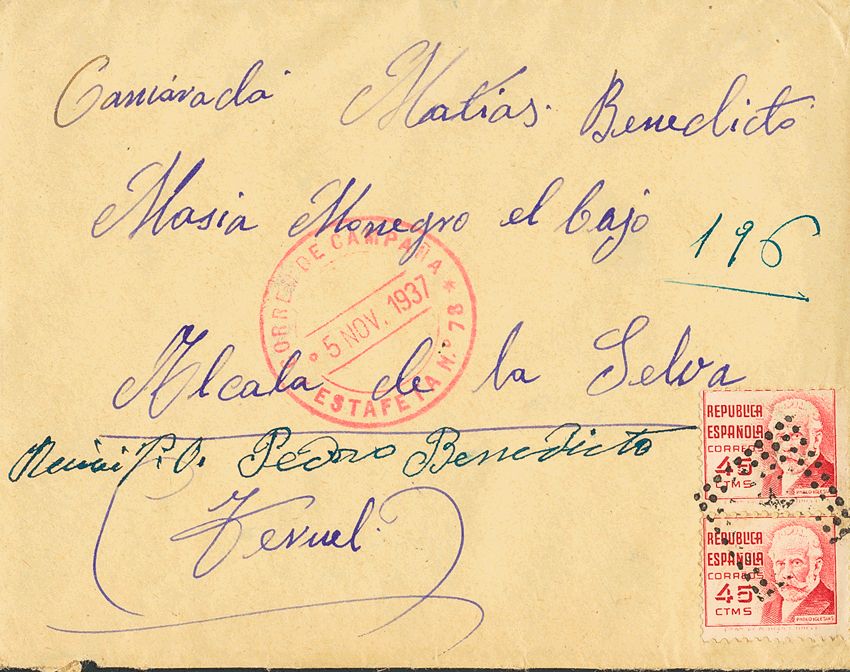 Camarada Matías Benedicto
Masia Monegro el bajo
196
CORREO DE CAMPAÑA
5 NOV. 1937
ESTAFETA N.º 78
Alcala de la Selva
P.O. Pedro Benedicto
Teruel.
REPUBLICA
ESPAÑOLA
CORREOS
45
CTMS
PABLO IGLESIAS
REPUBLICA
ESPAÑOLA
CORREOS
45
CTMS
PABLO IGLESIAS